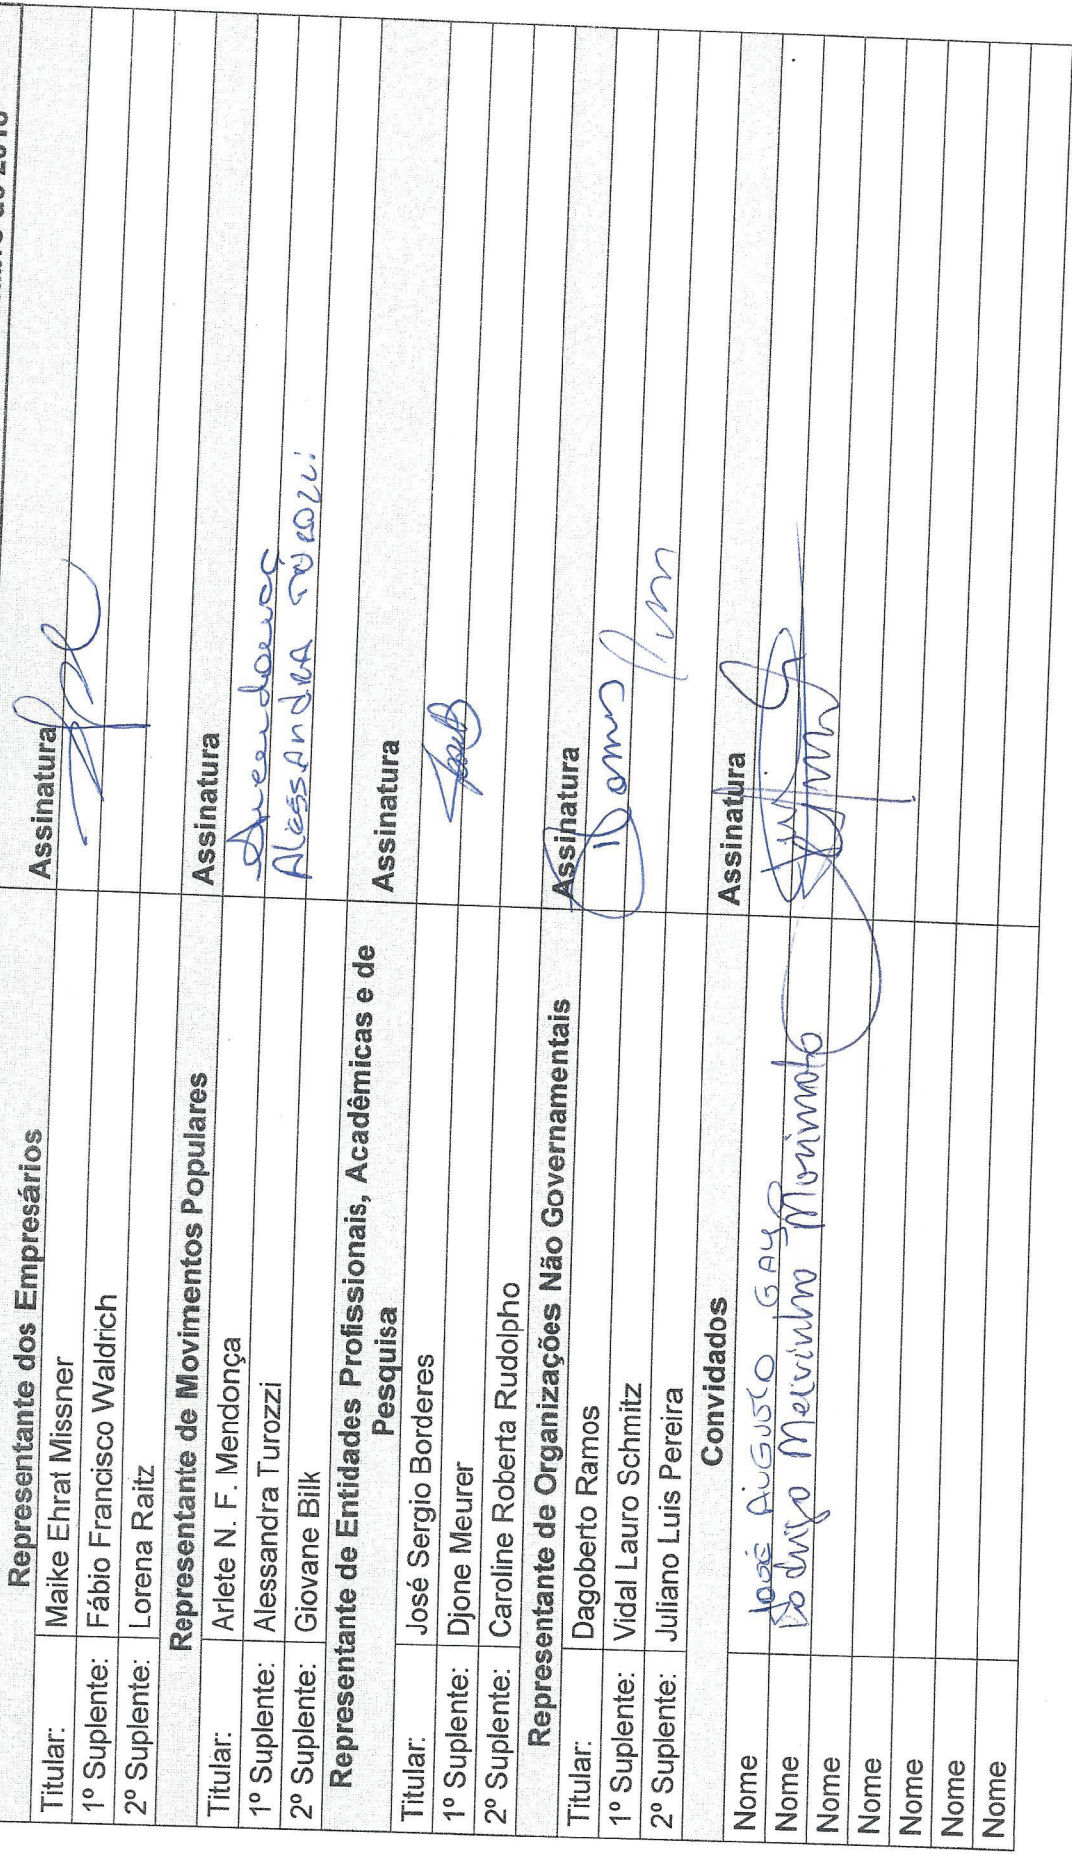 de 2018
Representante dos Empresários Assinatura
Titular: Maike Ehrat Missner
1º Suplente: Fábio Francisco Waldrich
2º Suplente: Lorena Raitz
Representante de Movimentos Populares Assinatura
Titular: Arlete N. F. Mendonça
1º Suplente: Alessandra Turozzi ALESSANDRA TUROZZI
2º Suplente: Giovane Bilk
Representante de Entidades Profissionais, Acadêmicas e de Assinatura
Pesquisa
Titular: José Sergio Borderes
1º Suplente: Djone Meurer
2º Suplente: Caroline Roberta Rudolpho
Representante de Organizações Não Governamentais Assinatura
Titular: Dagoberto Ramos
1º Suplente: Vidal Lauro Schmitz
2º Suplente: Juliano Luis Pereira
Convidados Assinatura
Nome JOSÉ AUGUSTO GAYA
Nome Rodrigo Morimoto
Nome
Nome
Nome
Nome
Nome